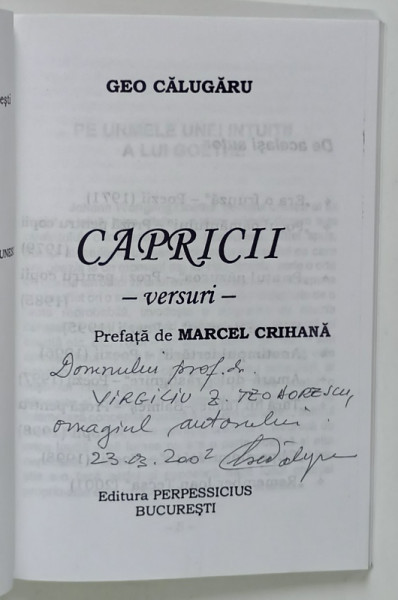 GEO CĂLUGĂRU
CAPRICII
– versuri –
Prefaţă de MARCEL CRIHANĂ
Domnului prof. dr.
VIRGILIU Z. TEODORESCU,
omagiul autorului.
23.03.2002
Editura PERPESSICIUS
BUCUREŞTI